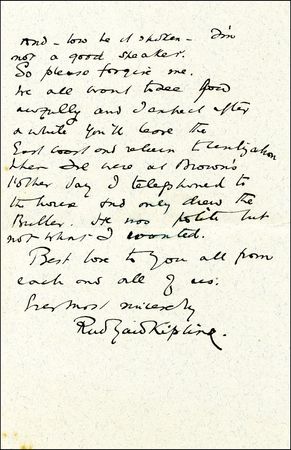 And - low be it spoken - I'm
not a good speaker.
So please forgive me.
We all want to see you
awfully and I expect after
a while you'll leave the
East coast and return to civilization
When I were at Brown's
t'other day I telephoned to
the house and only drew the
Butler. He was polite but
not what I wanted.
Best love to you all from
each and all of us.
Ever most sincerely
Rudyard Kipling.